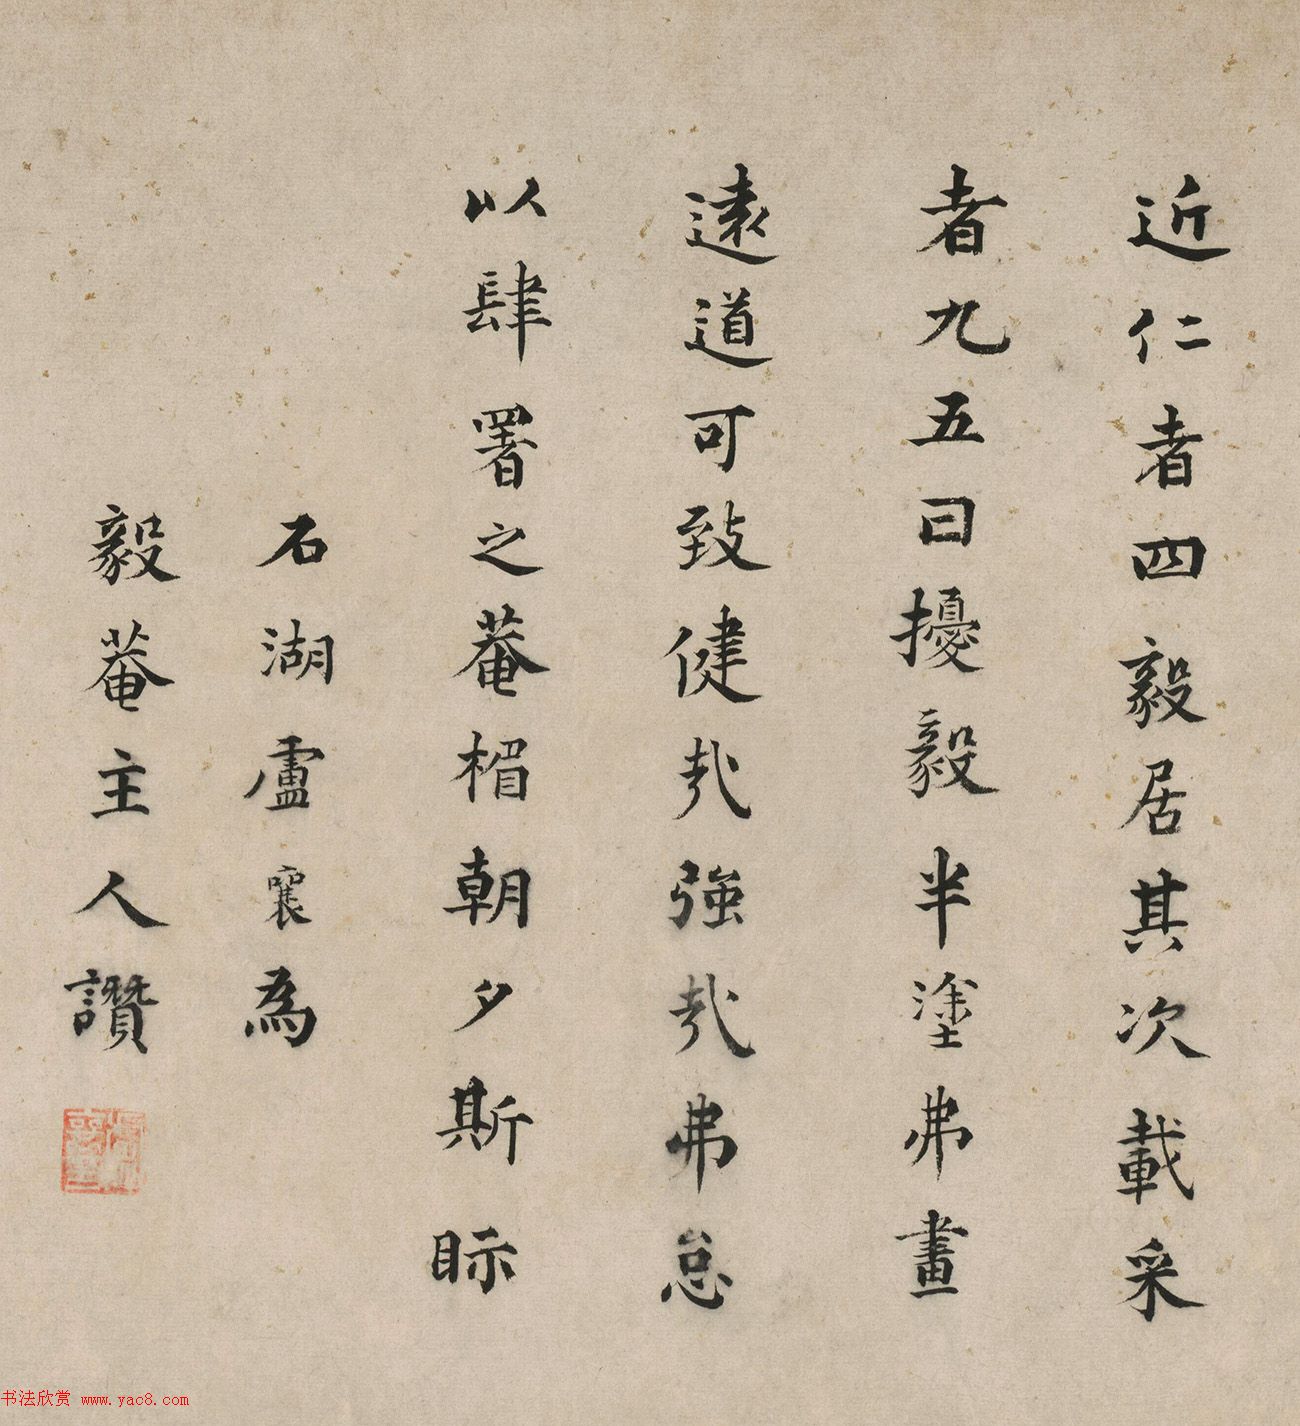 近仁者四毅居其次載采
者九五曰擾毅半塗弗畫
遠道可致健㢤強㢤弗怠
以肆署之菴楣朝夕斯眎
石湖盧襄為
毅菴主人讚
书法欣赏 www.yac8.com